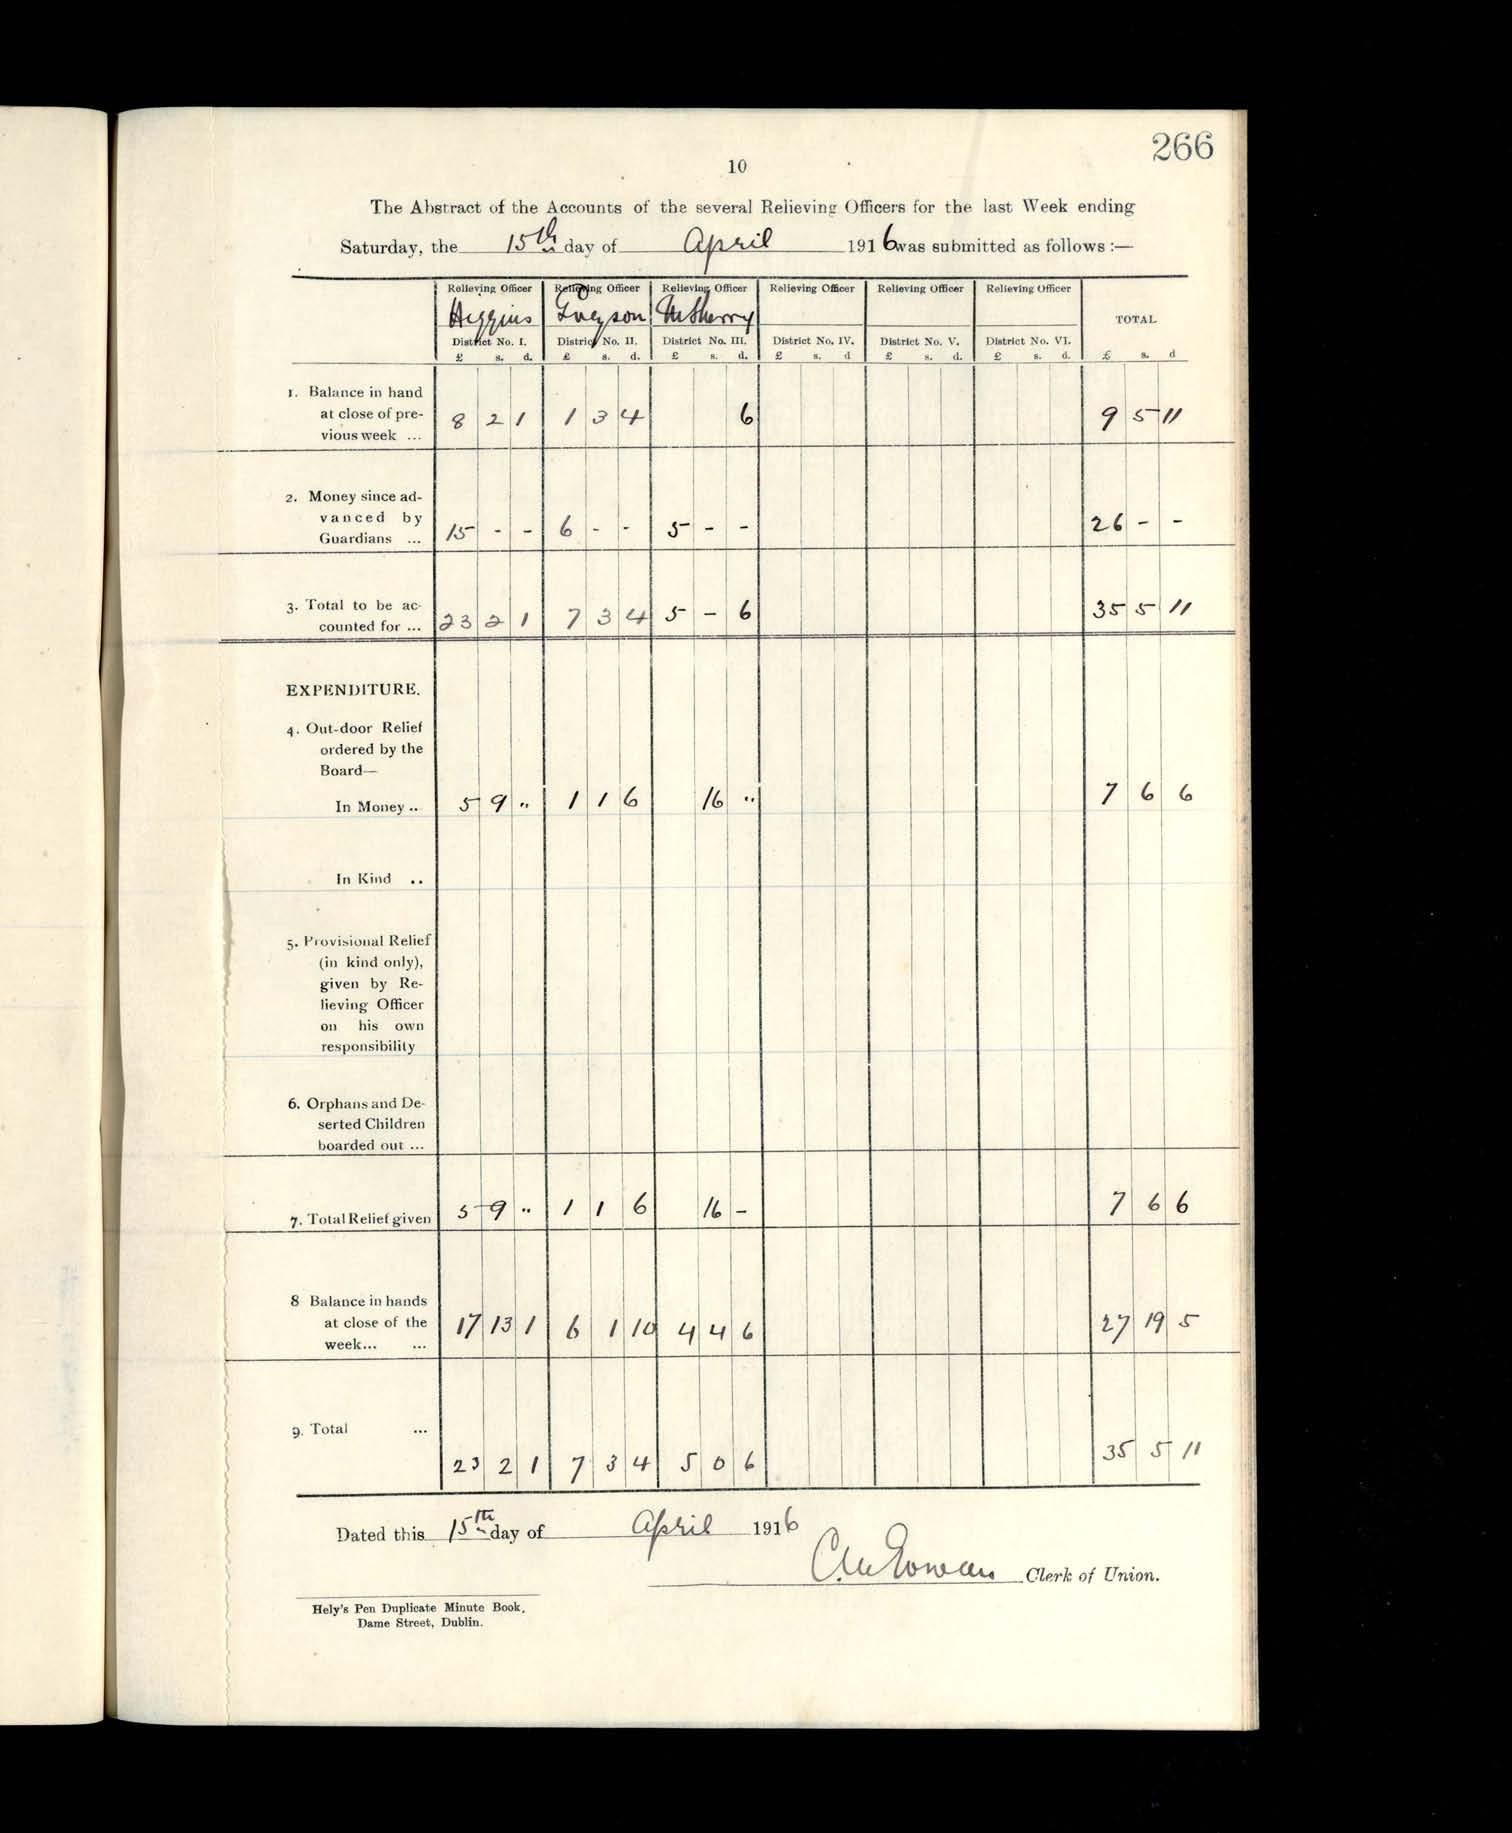 266
10
The Abstract of the Accounts of the several Relieving Officers for the last Week ending
Saturday, the 15th day of April 1916 was submitted as follows :—
Relieving Officer Relieving Officer Relieving Officer Relieving Officer Relieving Officer Relieving Officer
Higgins McSherry TOTAL
District No. I. District No. II. District No. III. District No. IV. District No. V. District No. VI.
£ s. d. £ s. d. £ s. d. £ s. d £ s. d. £ s. d. £ s. d
1. Balance in hand
at close of pre-
vious week ... 8 2 1 1 3 4 6 9 5 11
2. Money since ad-
vanced by
Guardians ... 15 - - 6 - - 5 - - 26 - -
3. Total to be ac-
counted for ... 23 2 1 7 3 4 5 - 6 35 5 11
EXPENDITURE.
4. Out-door Relief
ordered by the
Board—
In Money .. 5 9 " 1 1 6 16 " 7 6 6
In Kind ..
5. Provisional Relief
(in kind only),
given by Re-
lieving Officer
on his own
responsibility
6. Orphans and De-
serted Children
boarded out ...
7. Total Relief given 5 9 " 1 1 6 16 - 7 6 6
8 Balance in hands
at close of the
week... ... 17 13 1 6 1 10 4 4 6 27 19 5
9. Total ...
23 2 1 7 3 4 5 0 6 35 5 11
Dated this 15th day of April 1916
Clerk of Union.
Hely's Pen Duplicate Minute Book,
Dame Street, Dublin.